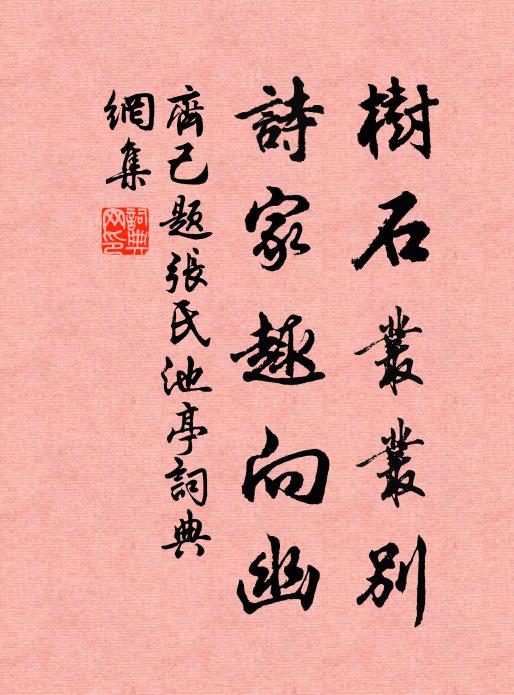 樹石叢叢別
詩家趣向幽
齊己題張氏池亭詞典
網集
詞典網印